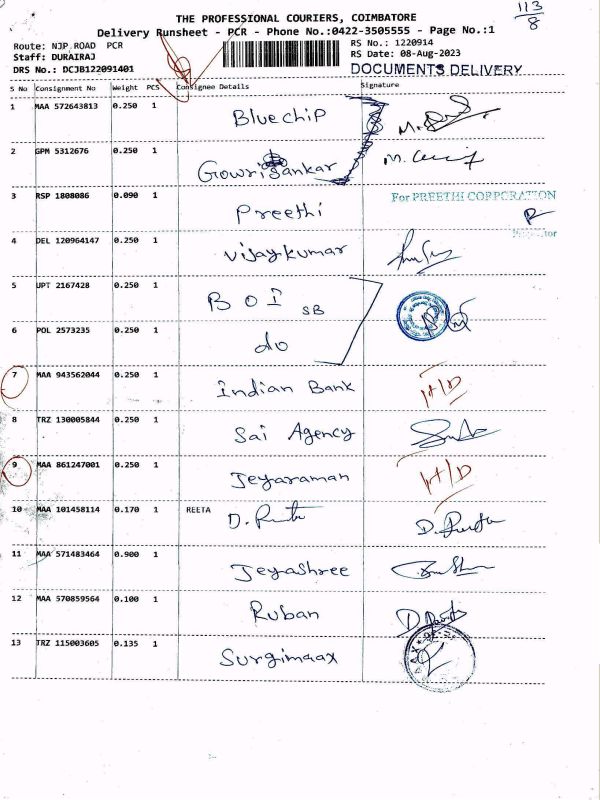 113/8
THE PROFESSIONAL COURIERS, COIMBATORE
Delivery Runsheet - PCR - Phone No.:0422-3505555 - Page No.:1
Route: NJP ROAD PCR
RS No.: 1220914
Staff: DURAIRAJ
RS Date: 08-Aug-2023
DRS No.: DCJB122091401
DOCUMENTS DELIVERY
S No Consignment No Weight PCS Consignee Details Signature
1 MAA 572643813 0.250 1 Bluechip
2 GPM 5312676 0.250 1 Gowrisankar
3 RSP 1808086 0.090 1 Preethi For PREETHI CORPORATION
4 DEL 120964147 0.250 1 Vijaykumar
5 UPT 2167428 0.250 1 BOI SB
6 POL 2573235 0.250 1 do
7 MAA 943562044 0.250 1 Indian Bank H/D
8 TRZ 130005844 0.250 1 Sai Agency
9 MAA 861247001 0.250 1 Jeyaraman H/D
10 MAA 101458114 0.170 1 REETA
11 MAA 571483464 0.900 1 Jeyashree
12 MAA 570859564 0.100 1 Ruban
13 TRZ 115003605 0.135 1 Surgimaax